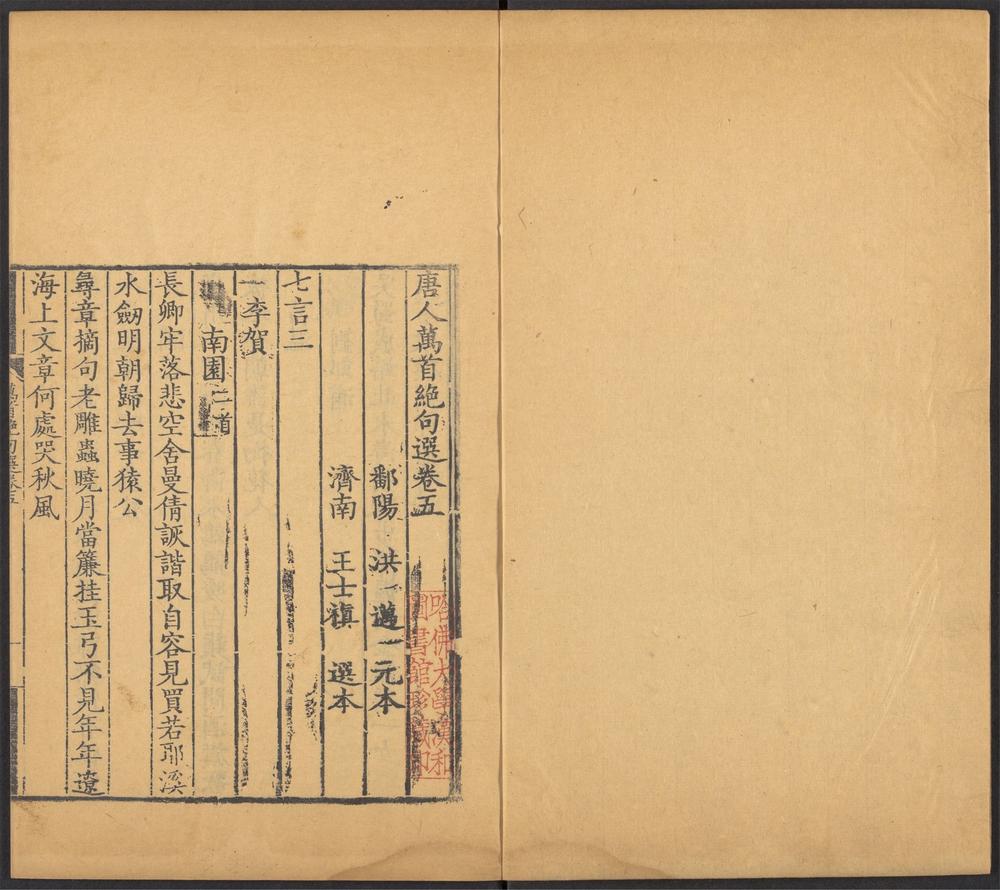 唐人萬首絕句選卷五
鄱陽 洪 邁 元本
濟南 王士禛 選本
七言三
李賀
南園二首
長卿牢落悲空舍曼倩詼諧取自容見買若耶溪
水劒明朝歸去事猿公
尋章摘句老雕蟲曉月當簾挂玉弓不見年年遼
海上文章何處哭秋風
哈佛大學漢和
圖書館珍藏印